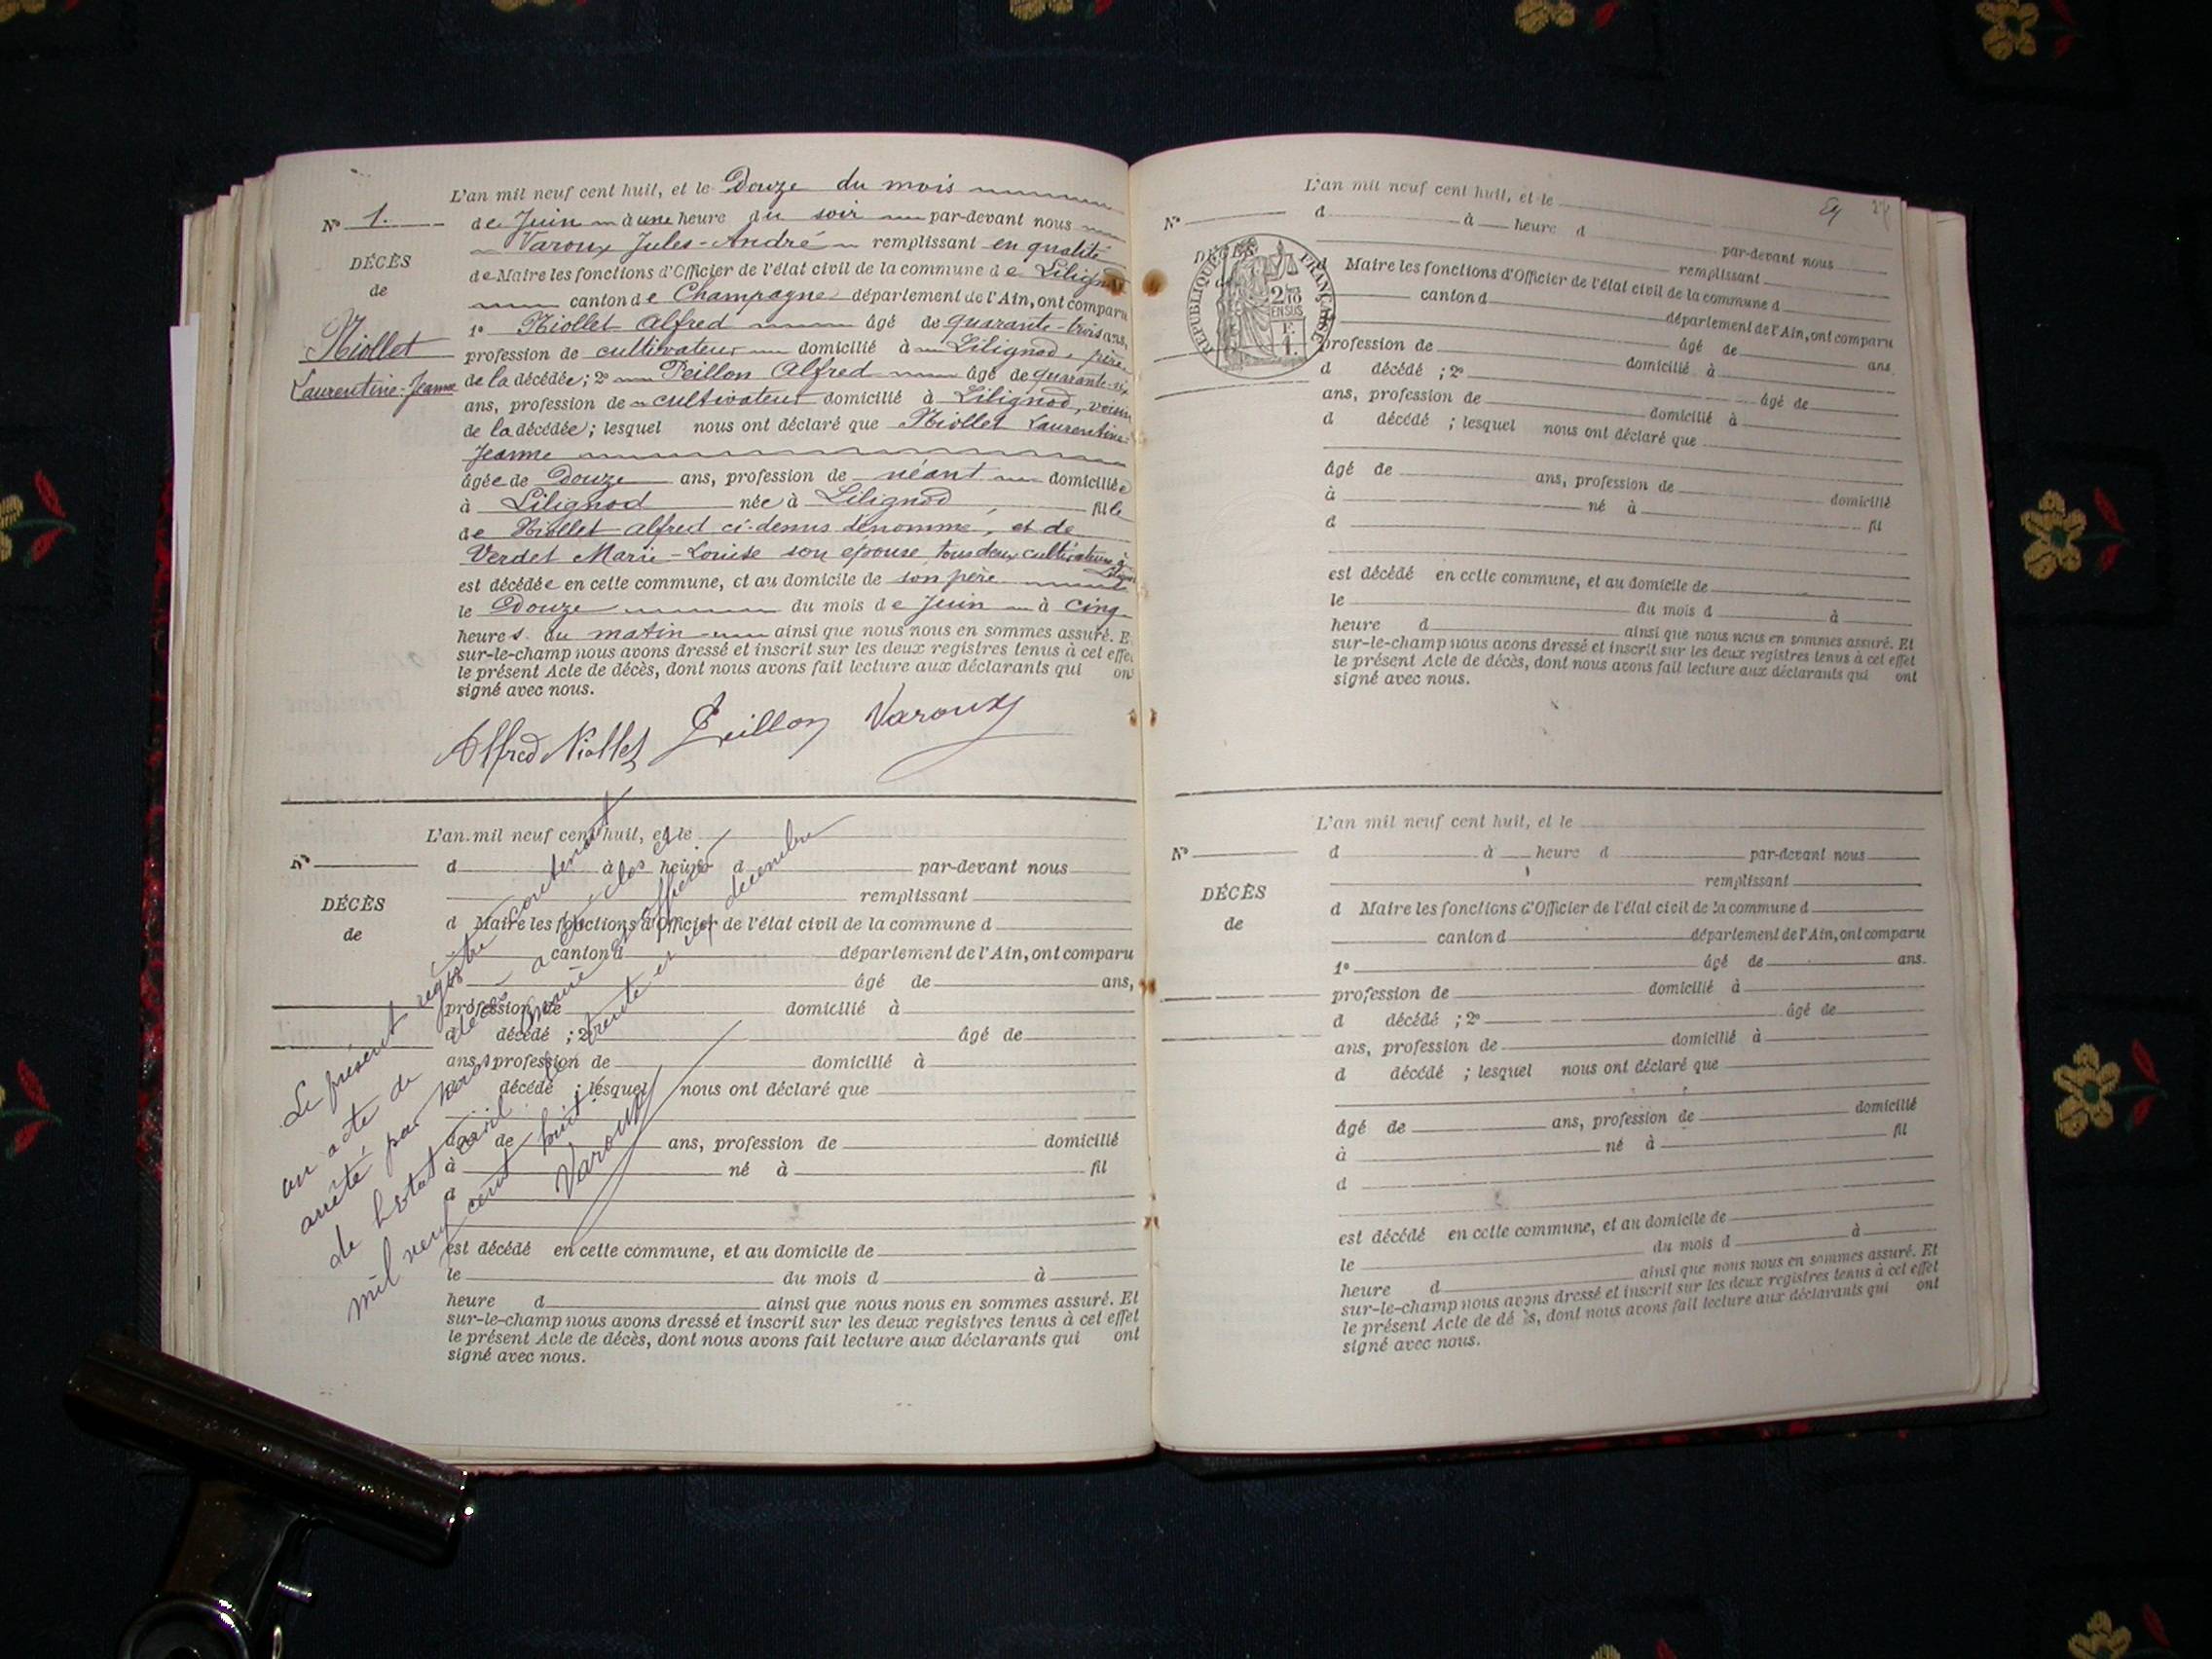 L'an mil neuf cent huit, et le Douze du mois
N° 1. de Juin à une heure du soir par-devant nous
Varoux Jules-André remplissant en qualité
DÉCÈS
de Maire les fonctions d'Officier de l'état civil de la commune de Lilignod
de
canton de Champagne département de l'Ain, ont comparu
1° Niollet Alfred âgé de quarante-trois ans,
Niollet
profession de cultivateur domicilié à Lilignod, père
Laurentine-Jeanne
de la décédée; 2° Peillon Alfred âgé de quarante-six
ans, profession de cultivateur domicilié à Lilignod, voisin
de la décédée; lesquel nous ont déclaré que Niollet Laurentine-
Jeanne
âgée de Douze ans, profession de néant domiciliée
à Lilignod née à Lilignod, fille
de Niollet Alfred ci-dessus dénommé, et de
Verdet Marie-Louise son épouse, tous deux cultivateurs à
Lilignod
est décédée en cette commune, et au domicile de son père
le Douze du mois de Juin à cinq
heures du matin ainsi que nous nous en sommes assuré. E
sur-le-champ nous avons dressé et inscrit sur les deux registres tenus à cet effe
le présent Acte de décès, dont nous avons fait lecture aux déclarants qui on
signé avec nous.
Alfred Niollet Peillon Varoux
L'an mil neuf cent huit, et le
N° d à heure d par-devant nous
remplissant
DÉCÈS
d Maire les fonctions d'Officier de l'état civil de la commune d
de
canton d département de l'Ain, ont comparu
âgé de ans,
profession de domicilié à
d décédé ; 2° âgé de
ans, profession de domicilié à
d décédé ; lesquel nous ont déclaré que
âgé de ans, profession de domicilié
à né à fil
d
est décédé en cette commune, et au domicile de
le du mois d à
heure d ainsi que nous nous en sommes assuré. Et
sur-le-champ nous avons dressé et inscrit sur les deux registres tenus à cet effet
le présent Acte de décès, dont nous avons fait lecture aux déclarants qui ont
signé avec nous.
Le présent registre contenant
un acte de décès a été clos et
arrêté par nous maire et officier
de l'état civil le trente et un décembre
mil neuf cent huit.
Varoux
L'an mil neuf cent huit, et le
N° d à heure d par-devant nous
DÉCÈS
remplissant
d Maire les fonctions d'Officier de l'état civil de la commune d
canton d département de l'Ain, ont comparu
âgé de ans
RÉPUBLIQUE FRANÇAISE
2/10 EN SUS
F.
1.
profession de domicilié à
d décédé ; 2° âgé de
ans, profession de domicilié à
d décédé ; lesquel nous ont déclaré que
âgé de ans, profession de domicilié
à né à fil
d
est décédé en cette commune, et au domicile de
le du mois d à
heure d ainsi que nous nous en sommes assuré. Et
sur-le-champ nous avons dressé et inscrit sur les deux registres tenus à cet effet
le présent Acte de décès, dont nous avons fait lecture aux déclarants qui ont
signé avec nous.
L'an mil neuf cent huit, et le
N° d à heure d par-devant nous
remplissant
DÉCÈS
d Maire les fonctions d'Officier de l'état civil de la commune d
de
canton d département de l'Ain, ont comparu
1° âgé de ans.
profession de domicilié à
d décédé ; 2° âgé de
ans, profession de domicilié à
d décédé ; lesquel nous ont déclaré que
âgé de ans, profession de domicilié
à né à fil
d
est décédé en cette commune, et au domicile de
le du mois d à
heure d ainsi que nous nous en sommes assuré. Et
sur-le-champ nous avons dressé et inscrit sur les deux registres tenus à cet effet
le présent Acte de dé s, dont nous avons fait lecture aux déclarants qui ont
signé avec nous.